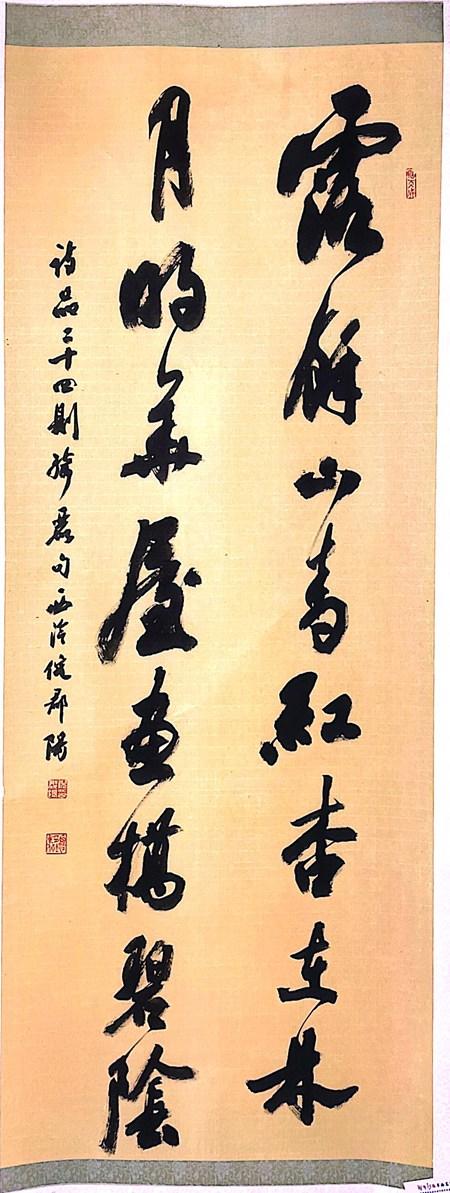 露餘山青紅杏在林
月明華屋畫橋碧陰
詩品二十四則綺麗句